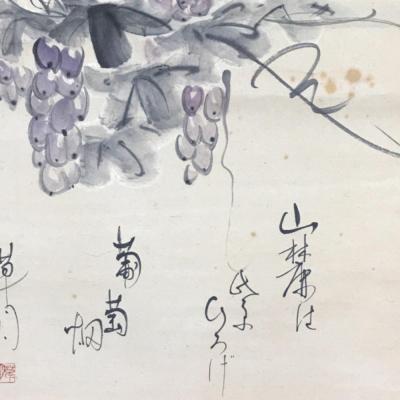 山麓は
紫ひろげ
葡萄畑